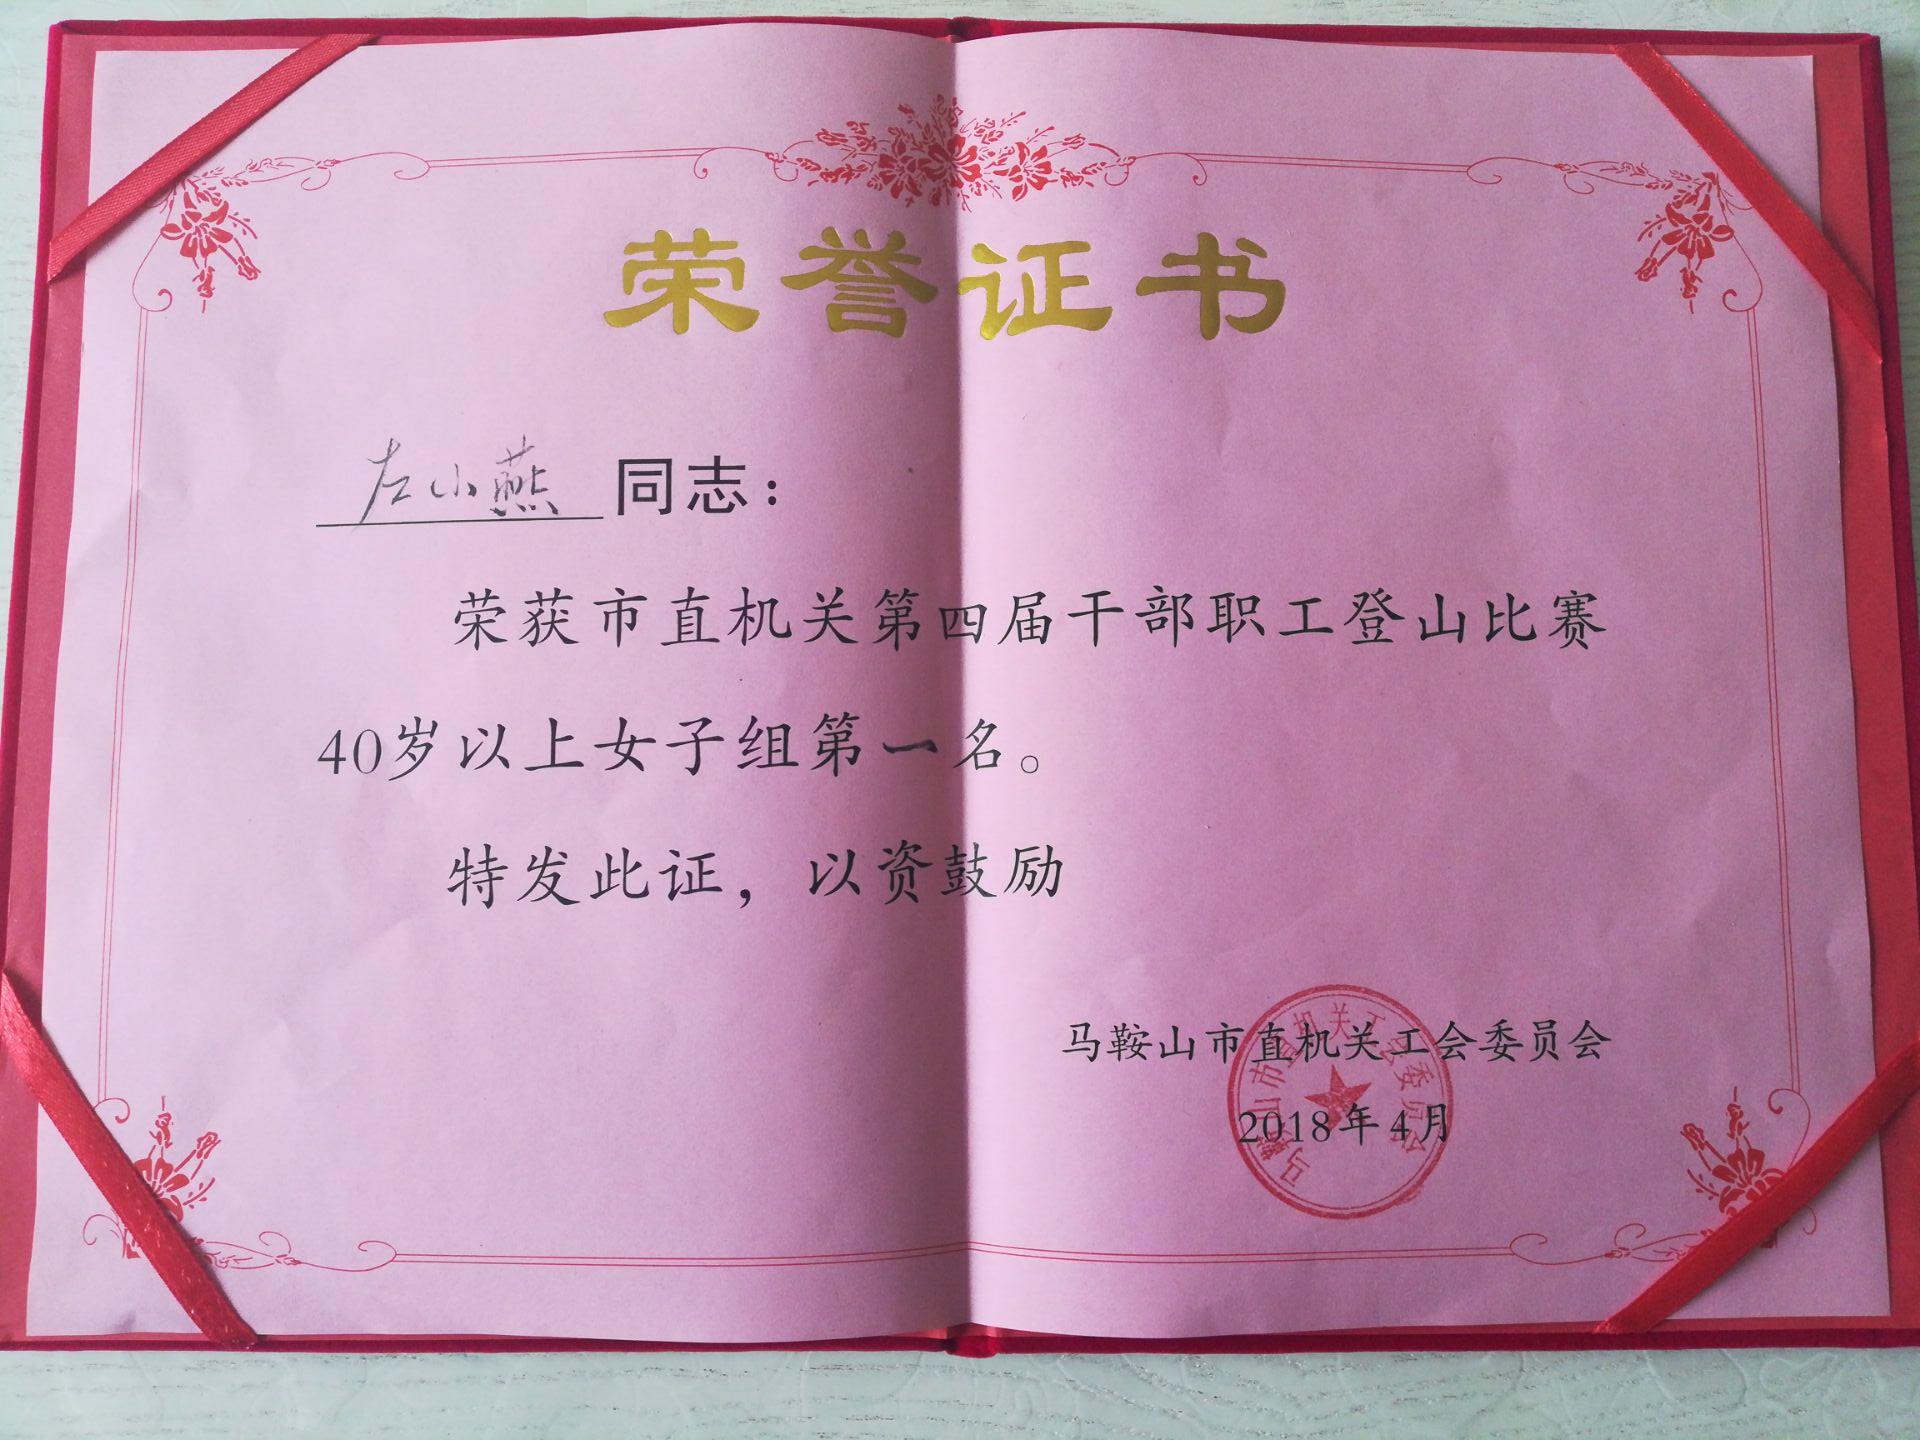 荣誉证书
左小燕 同志：
荣获市直机关第四届干部职工登山比赛
40岁以上女子组第一名。
特发此证，以资鼓励
马鞍山市直机关工会委员会
2018年4月
马鞍山市直机关工会委员会